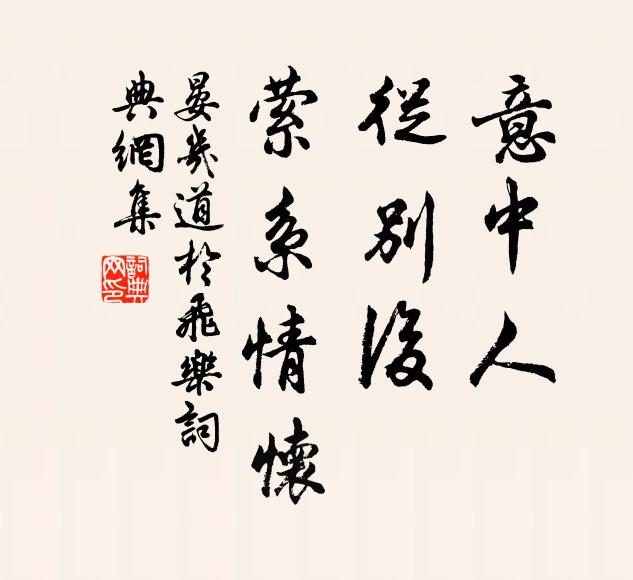 意中人
從別後
縈系情懷
晏幾道於飛樂詞
典網集
詞典網印